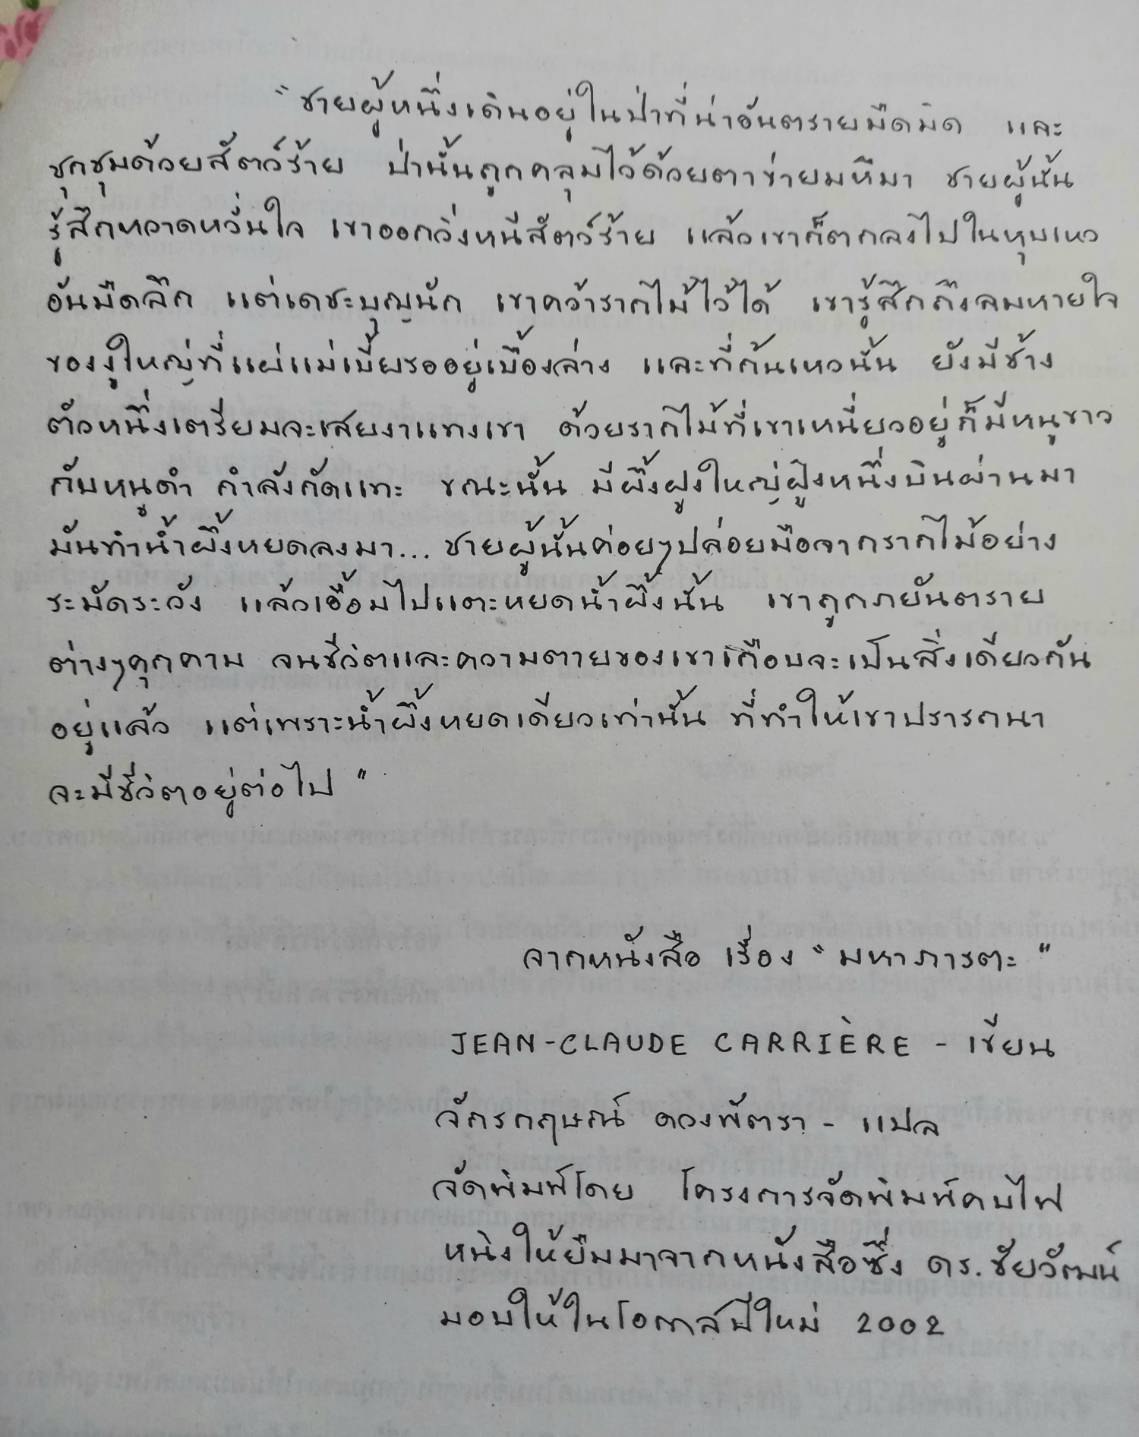 "ชายผู้หนึ่งเดินอยู่ในป่าที่น่าอันตรายมืดมิด และ
ชุกชุมด้วยสัตว์ร้าย ป่านั้นถูกคลุมไว้ด้วยตาข่ายมหึมา ชายผู้นั้น
รู้สึกหวาดหวั่นใจ เขาออกวิ่งหนีสัตว์ร้าย แล้วเขาก็ตกลงไปในหุบเหว
อันมืดลึก แต่เดชะบุญนัก เขาคว้ารากไม้ไว้ได้ เขารู้สึกถึงลมหายใจ
ของงูใหญ่ที่แผ่แม่เบี้ยรออยู่เบื้องล่าง และที่ก้นเหวนั้น ยังมีช้าง
ตัวหนึ่งเตรียมจะเสยงาแทงเขา ด้วยรากไม้ที่เขาเหนี่ยวอยู่ก็มีหนูขาว
กับหนูดำ กำลังกัดแทะ ขณะนั้น มีผึ้งฝูงใหญ่ฝูงหนึ่งบินผ่านมา
มันทำน้ำผึ้งหยดลงมา... ชายผู้นั้นค่อยๆปล่อยมือจากรากไม้อย่าง
ระมัดระวัง แล้วเอื้อมไปแตะหยดน้ำผึ้งนั้น เขาถูกภยันตราย
ต่างๆคุกคาม จนชีวิตและความตายของเขาเกือบจะเป็นสิ่งเดียวกัน
อยู่แล้ว แต่เพราะน้ำผึ้งหยดเดียวเท่านั้น ที่ทำให้เขาปรารถนา
จะมีชีวิตอยู่ต่อไป"
จากหนังสือ เรื่อง "มหาภารตะ"
JEAN-CLAUDE CARRIÈRE - เขียน
จักรกฤษณ์ ดวงพัตรา - แปล
จัดพิมพ์โดย โครงการจัดพิมพ์คบไฟ
หนิงให้ยืมมาจากหนังสือซึ่ง ดร.ชัยวัฒน์
มอบให้ในโอกาสปีใหม่ 2002